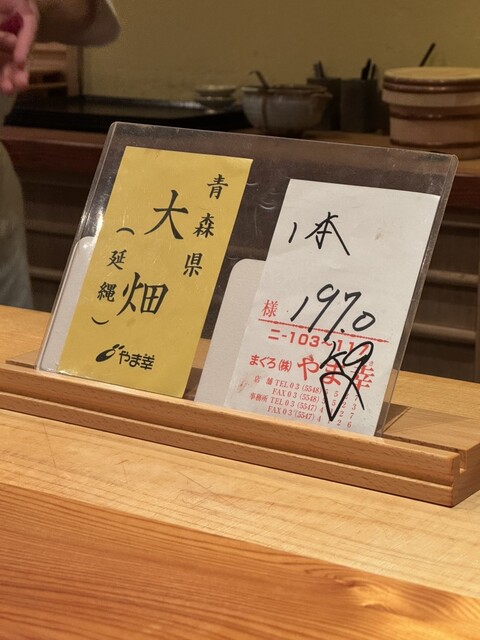 青森県
大畑
(延縄)
やま幸
1本
様
197.0
ニ-103-11
まぐろ(株)やま幸
店舗 TEL 03 (5548)
FAX 03 (5548)
事務所 TEL 03 (5547)
FAX 03 (5547)